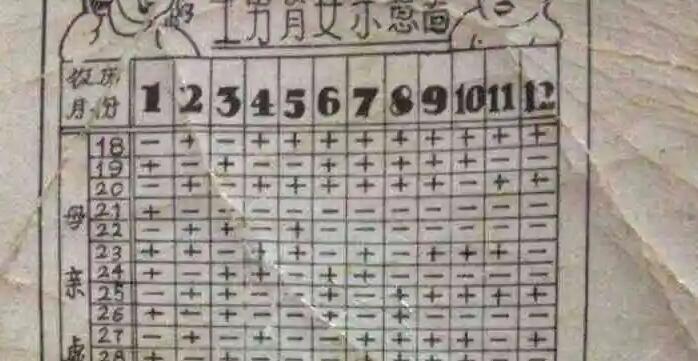 生男育女示意图
农历
月份 1 2 3 4 5 6 7 8 9 10 11 12
母亲
18 − + − + + + + + + + + +
19 + − + − − + + + + + − −
20 − + − + + + + + + − + +
21 + − − − − − − − − − − −
22 − + + − + − − − − − − −
23 + + − + + − + − + + + −
24 + − + + − + + − − − − −
25 − + + − − + − + + + + +
26 + − + − − + − + − − − −
27 − + − + − − + − − + − +
28